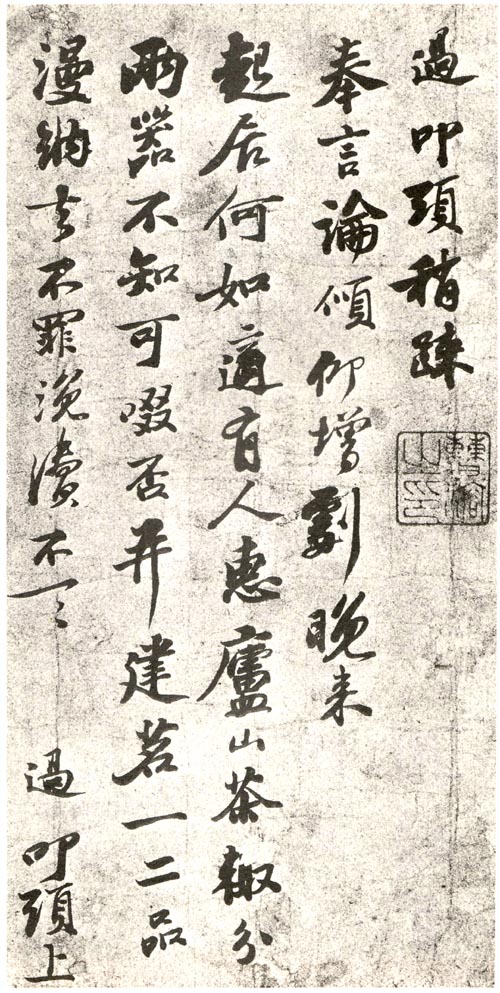 過叩頭稍疎
奉言論傾仰增劇晚來
起居何如適有人惠廬山茶輙分
兩器不知可啜否并建茗一二品
漫納去不罪浼瀆不一一　過　叩頭上